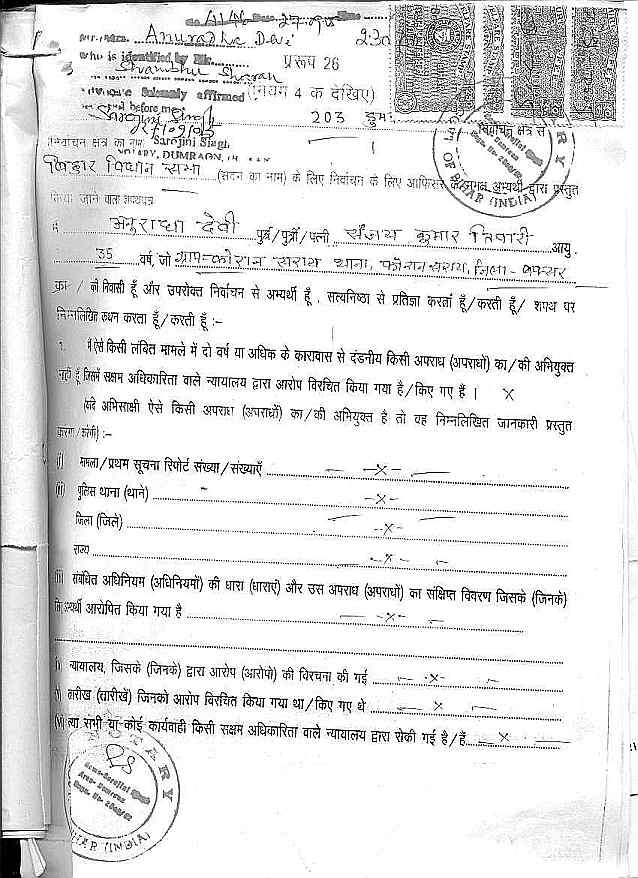 27-09-05
Anuradha Devi 230
who is identified by
Shambhu Sharan प्ररूप 26
Solemnly affirmed (नियम 4 क देखिए)
before me
Sarojini Singh 203 डुम. निर्वाचन क्षेत्र से
27/09/05
निर्वाचन क्षेत्र का नाम Sarojini Singh
NOTARY, DUMRAON,
बिहार विधान सभा (सदन का नाम) के लिए निर्वाचन के लिए आफिसर के समक्ष अभ्यर्थी द्वारा प्रस्तुत
किया जाने वाला शपथपत्र
मैं अनुराधा देवी पुत्र/पुत्री/पत्नी संजय कुमार तिवारी आयु
35 वर्ष, जो ग्राम-कोरान सराय थाना, कोरान सराय, जिला - बक्सर
का / की निवासी हूँ और उपरोक्त निर्वाचन से अभ्यर्थी हूँ, सत्यनिष्ठा से प्रतिज्ञा करता हूँ/करती हूँ/ शपथ पर
निम्नलिखित कथन करता हूँ/करती हूँ :-
१. मैं ऐसे किसी लंबित मामले में दो वर्ष या अधिक के कारावास से दंडनीय किसी अपराध (अपराधों) का/की अभियुक्त
नहीं हूँ जिसमें सक्षम अधिकारिता वाले न्यायालय द्वारा आरोप विरचित किया गया है/किए गए हैं। X
(यदि अभिसाक्षी ऐसे किसी अपराध (अपराधों) का/की अभियुक्त है तो वह निम्नलिखित जानकारी प्रस्तुत
करेगा/करेगी) :-
(i) मामला/प्रथम सूचना रिपोर्ट संख्या/संख्याएँ - X -
(ii) पुलिस थाना (थाने) - X -
जिला (जिले) - X -
राज्य - X -
(iii) संबंधित अधिनियम (अधिनियमों) की धारा (धाराएं) और उस अपराध (अपराधों) का संक्षिप्त विवरण जिसके (जिनके)
लिए अभ्यर्थी आरोपित किया गया है - X -
न्यायालय, जिसके (जिनके) द्वारा आरोप (आरोपों) की विरचना की गई - X -
तारीख (तारीखें) जिनको आरोप विरचित किया गया था/किए गए थे - X -
(vi) क्या सभी या कोई कार्यवाही किसी सक्षम अधिकारिता वाले न्यायालय द्वारा रोकी गई है/हैं X
NOTARY
Name-Sarojini Singh
Area- Dumraon
Regn. No.
BIHAR (INDIA)
NOTARY
GOVT. OF BIHAR (INDIA)